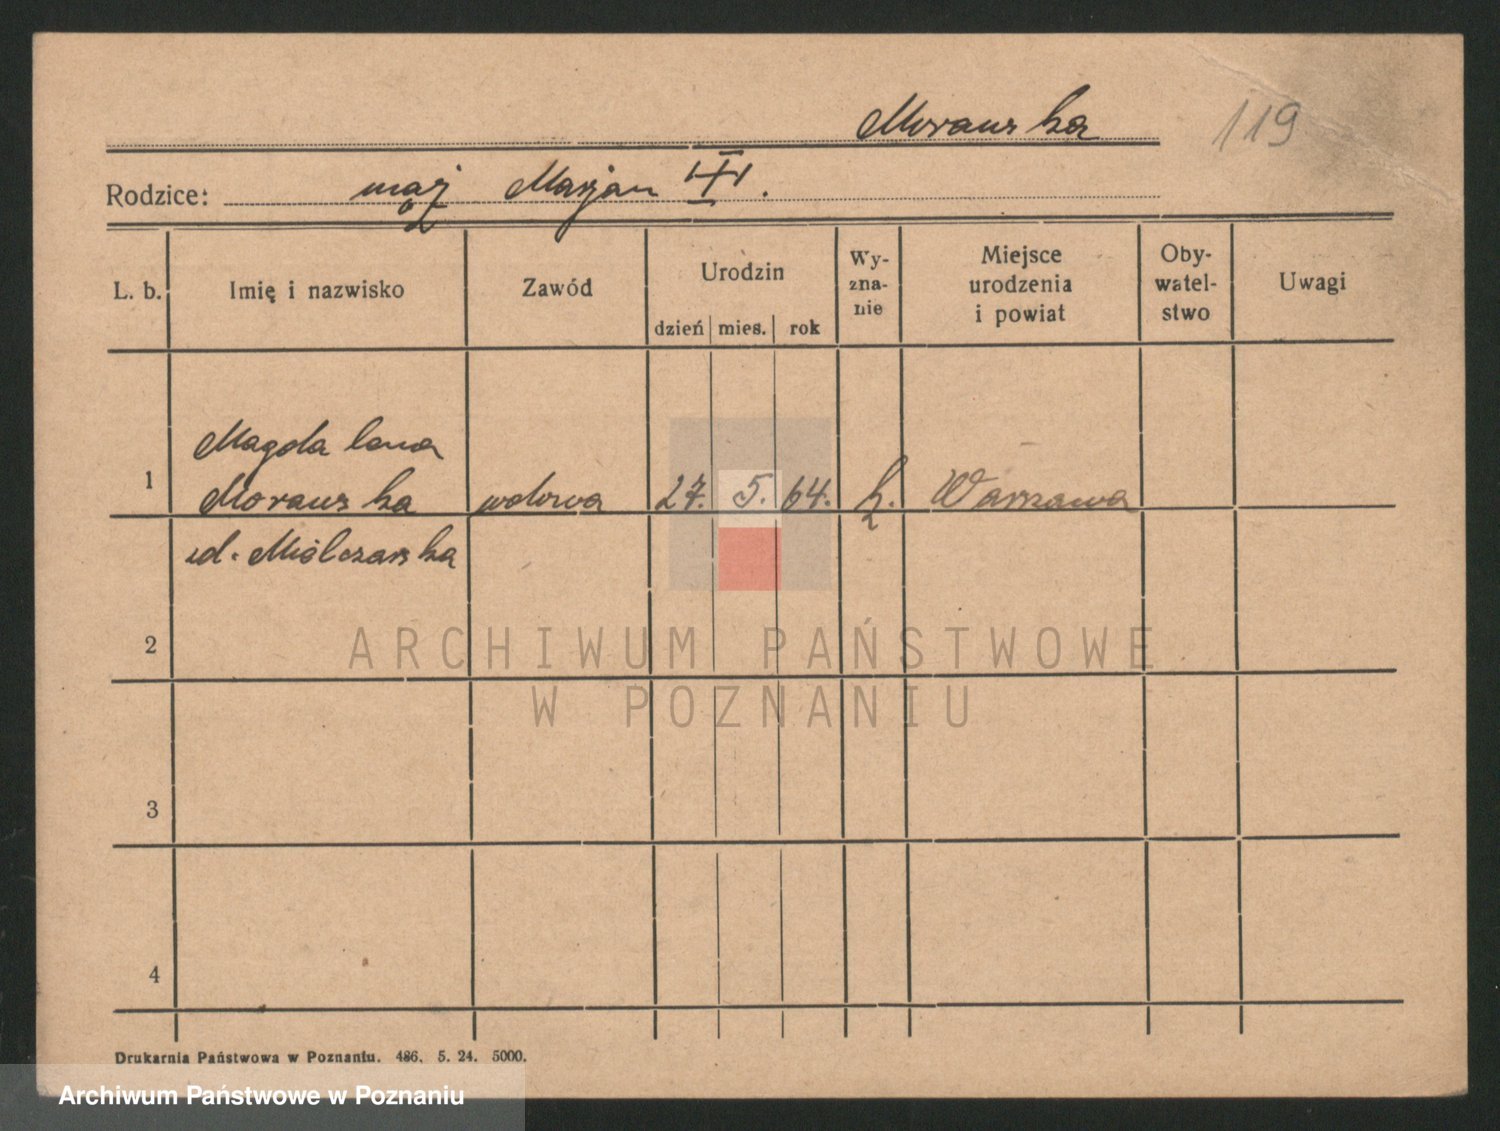 Morawska
119
Rodzice: mąż Marjan III.
L. b. Imię i nazwisko Zawód Urodzin dzień mies. rok Wy-zna-nie Miejsce urodzenia i powiat Oby-watel-stwo Uwagi
Magdalena
1 Morawska wdowa 27. 5. 64. k. Warszawa
ud. Mielczarska
2
ARCHIWUM PAŃSTWOWE
W POZNANIU
3
4
Drukarnia Państwowa w Poznaniu. 486. 5. 24. 5000.
Archiwum Państwowe w Poznaniu